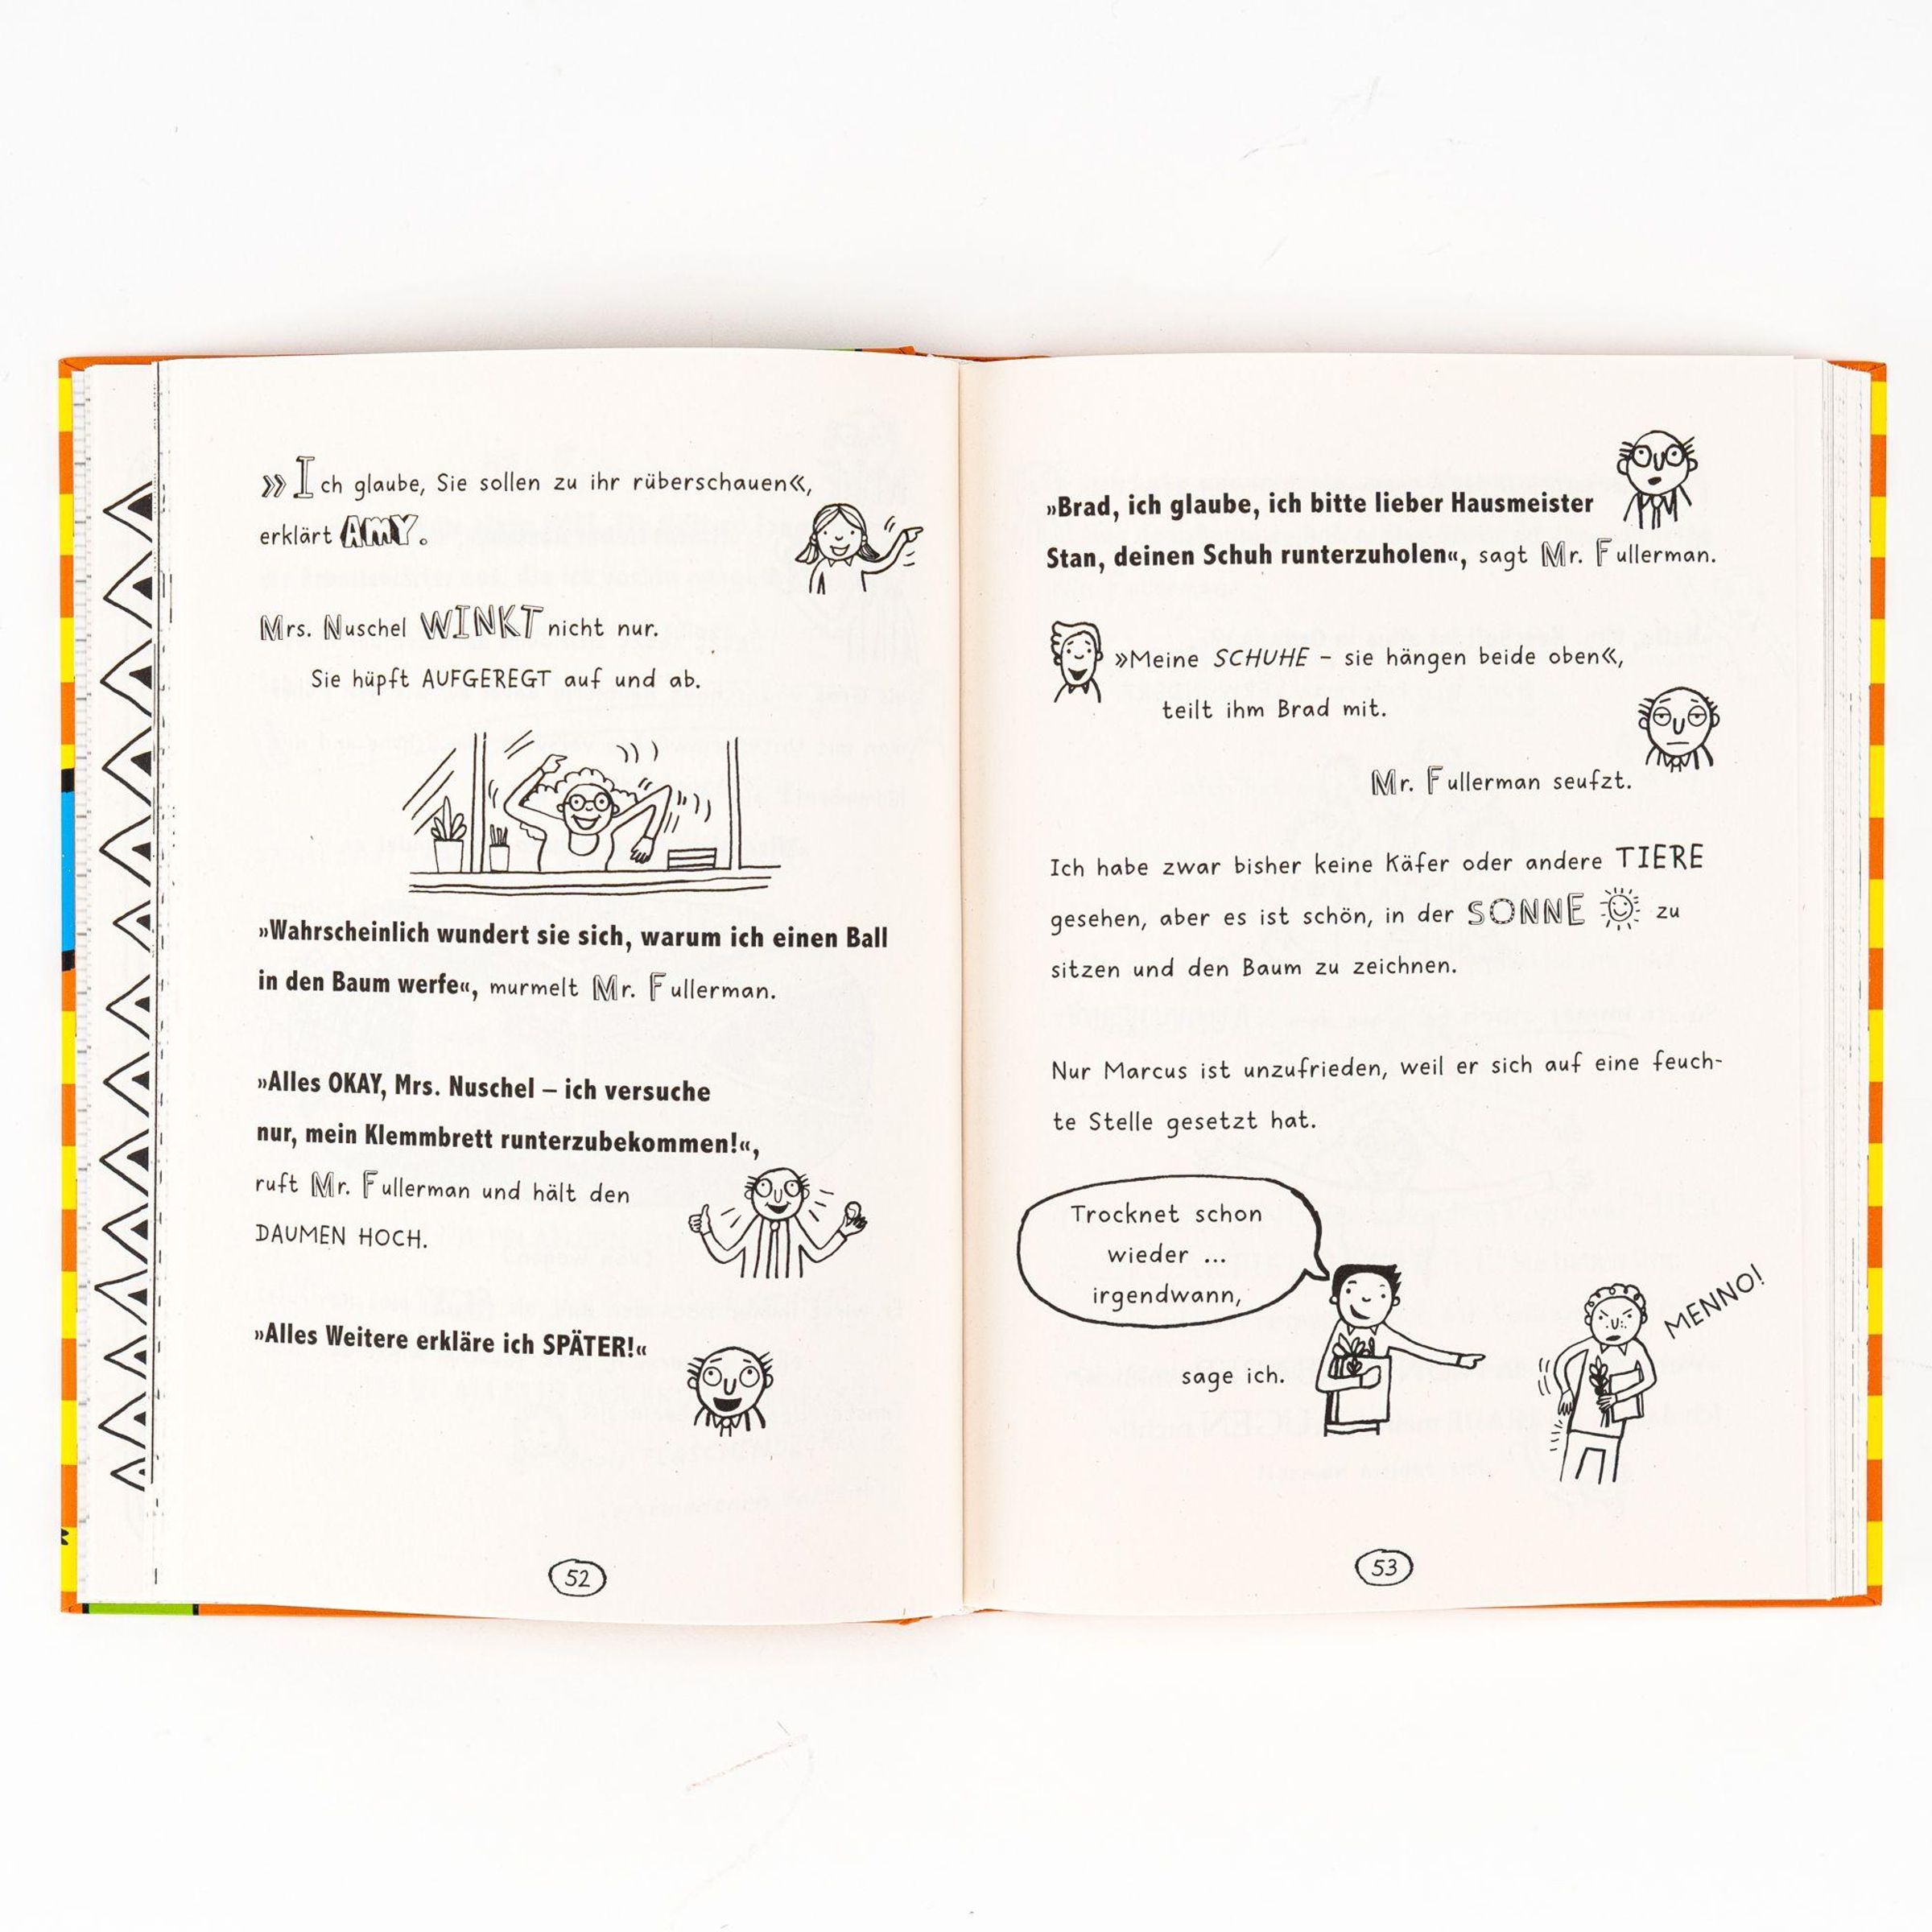 »Ich glaube, Sie sollen zu ihr rüberschauen«,
erklärt AMY.
Mrs. Nuschel WINKT nicht nur.
Sie hüpft AUFGEREGT auf und ab.
»Wahrscheinlich wundert sie sich, warum ich einen Ball
in den Baum werfe«, murmelt Mr. Fullerman.
»Alles OKAY, Mrs. Nuschel – ich versuche
nur, mein Klemmbrett runterzubekommen!«,
ruft Mr. Fullerman und hält den
DAUMEN HOCH.
»Alles Weitere erkläre ich SPÄTER!«
52
»Brad, ich glaube, ich bitte lieber Hausmeister
Stan, deinen Schuh runterzuholen«, sagt Mr. Fullerman.
»Meine SCHUHE – sie hängen beide oben«,
teilt ihm Brad mit.
Mr. Fullerman seufzt.
Ich habe zwar bisher keine Käfer oder andere TIERE
gesehen, aber es ist schön, in der SONNE zu
sitzen und den Baum zu zeichnen.
Nur Marcus ist unzufrieden, weil er sich auf eine feuch-
te Stelle gesetzt hat.
Trocknet schon
wieder ...
irgendwann,
sage ich.
MENNO!
53